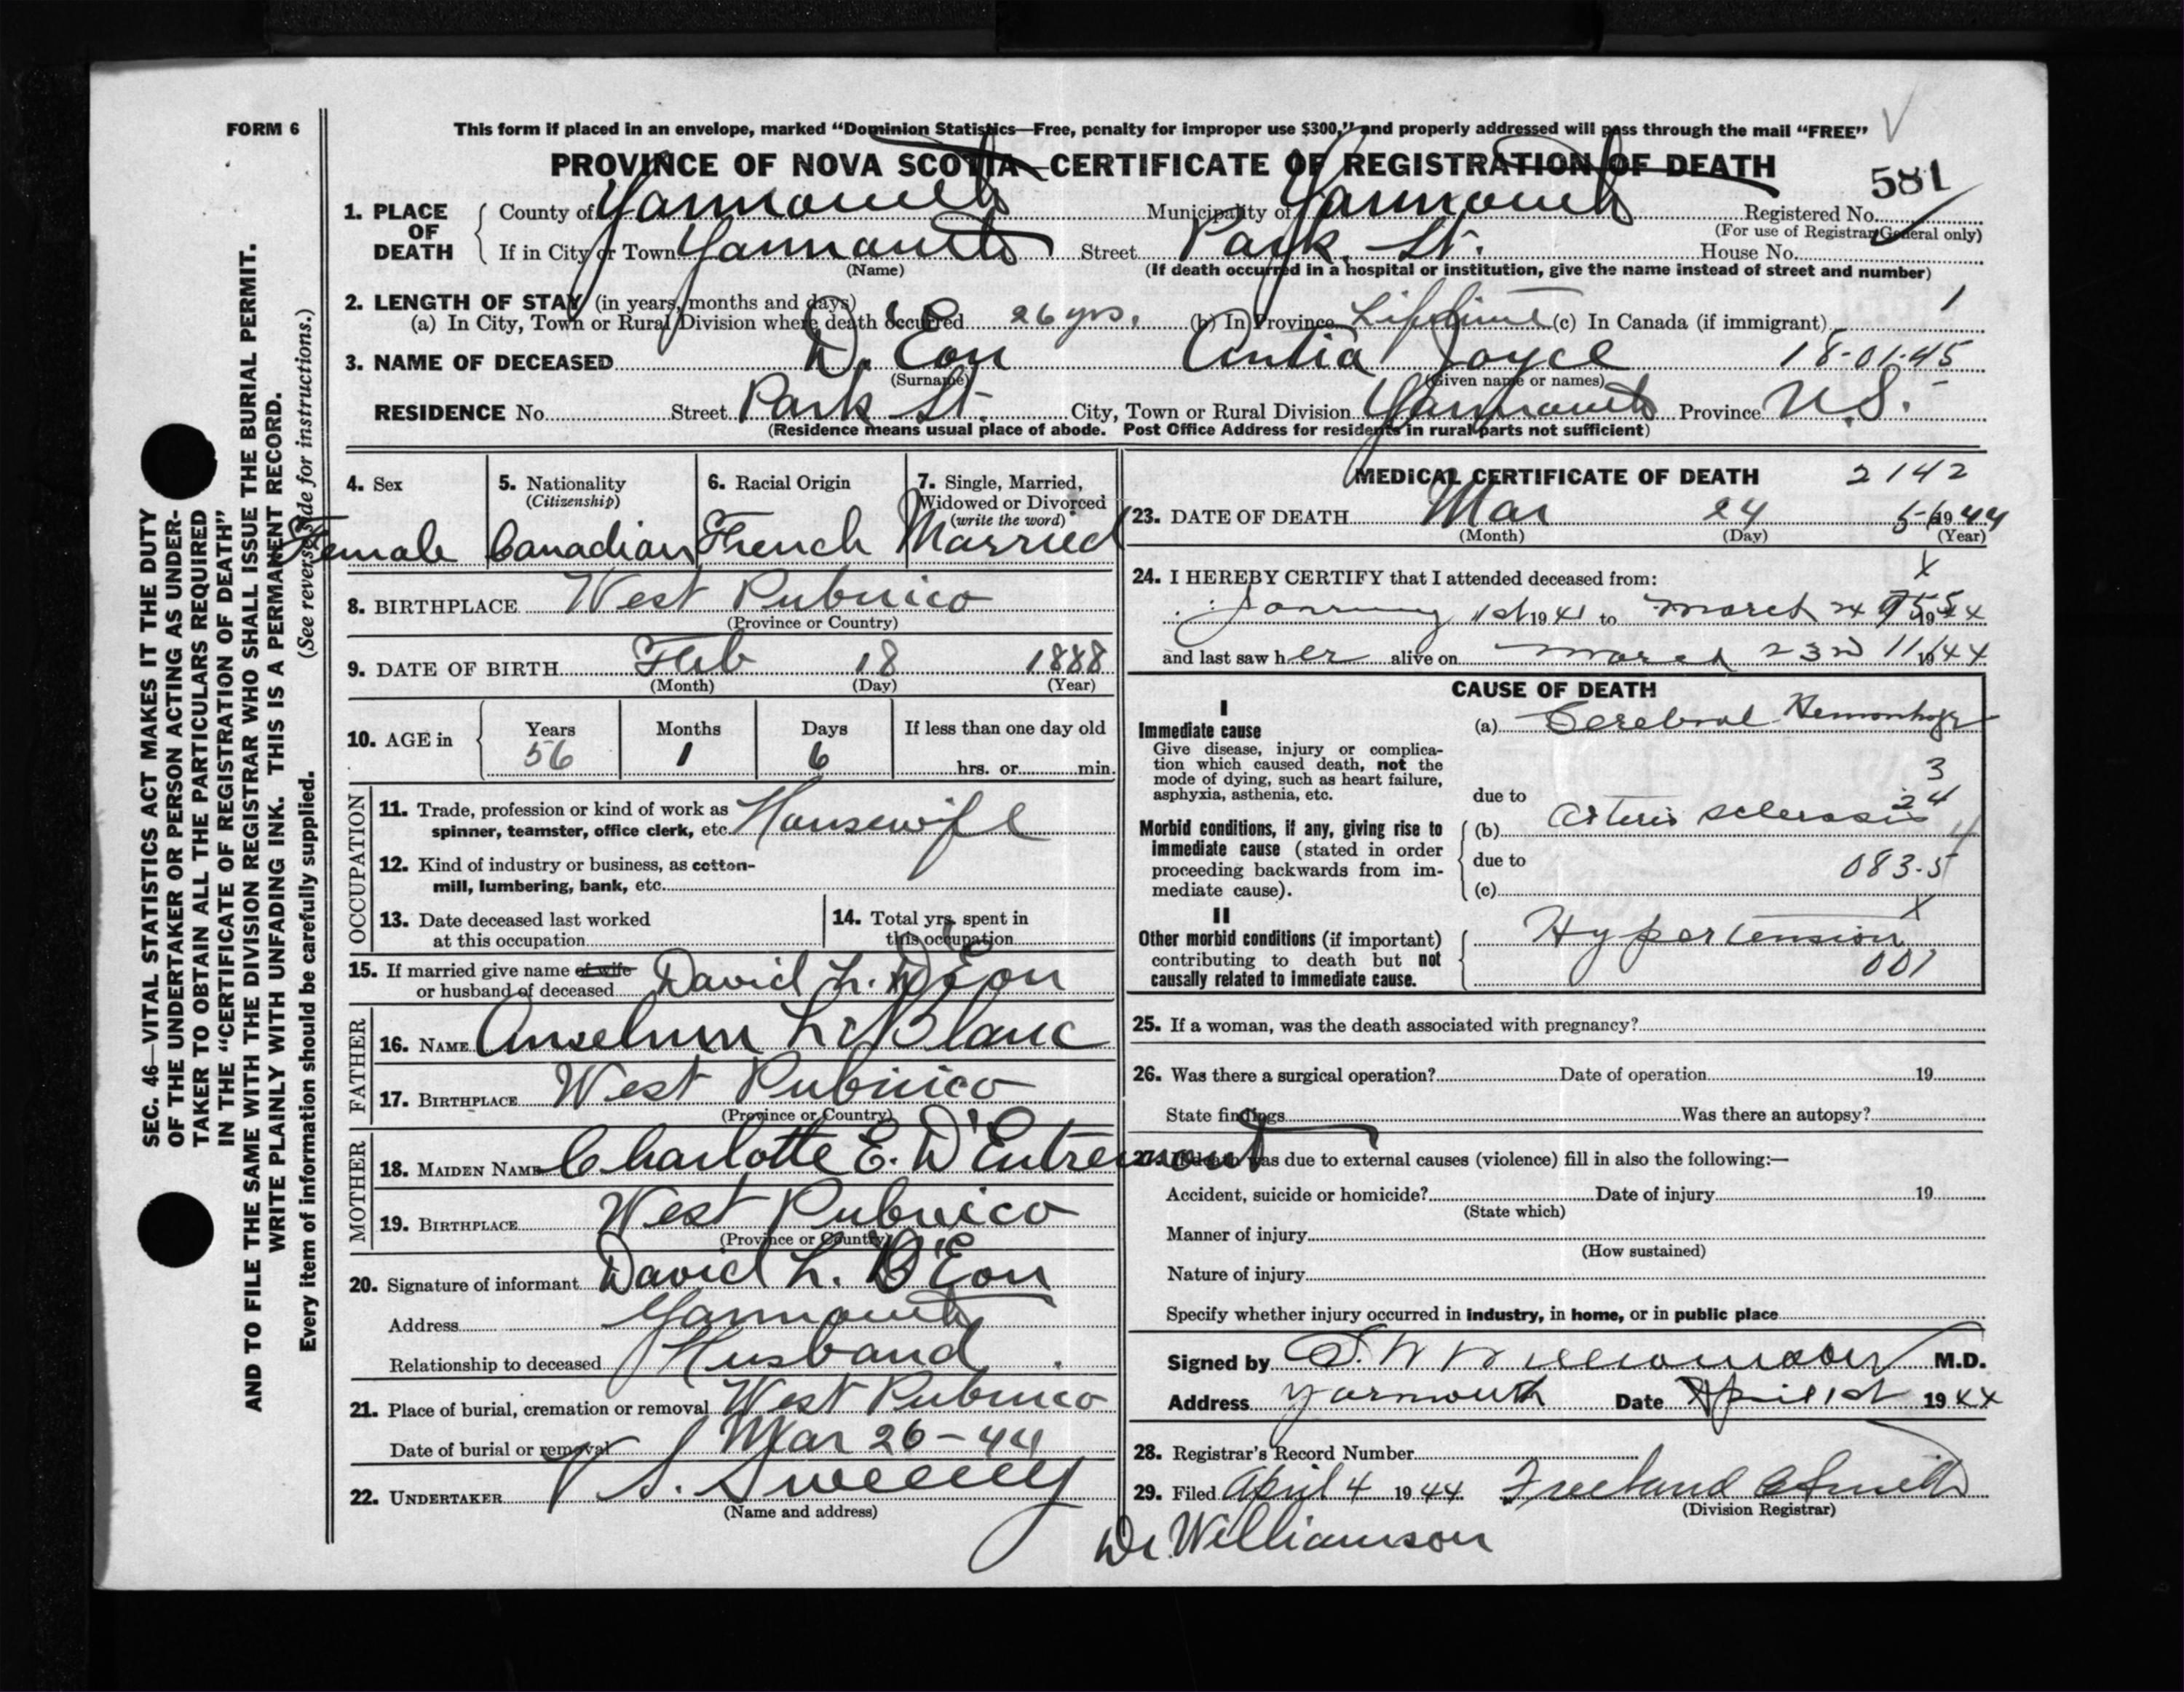 FORM 6
This form if placed in an envelope, marked "Dominion Statistics—Free, penalty for improper use $300," and properly addressed will pass through the mail "FREE"
PROVINCE OF NOVA SCOTIA—CERTIFICATE OF REGISTRATION OF DEATH
581
1. PLACE OF DEATH
County of Yarmouth Municipality of Yarmouth Registered No.
(For use of Registrar General only)
If in City or Town Yarmouth Street Park St. House No.
(Name) (If death occurred in a hospital or institution, give the name instead of street and number)
2. LENGTH OF STAY (in years, months and days)
(a) In City, Town or Rural Division where death occurred 26 yrs. (b) In Province Lifetime (c) In Canada (if immigrant) 1
3. NAME OF DECEASED D'Eon Antia Joyce 18-01-45
(Surname) (Given name or names)
RESIDENCE No. Street Park St. City, Town or Rural Division Yarmouth Province N.S.
(Residence means usual place of abode. Post Office Address for residents in rural parts not sufficient)
4. Sex 5. Nationality (Citizenship) 6. Racial Origin 7. Single, Married, Widowed or Divorced (write the word)
Female Canadian French Married
8. BIRTHPLACE West Pubnico
(Province or Country)
9. DATE OF BIRTH Feb 18 1888
(Month) (Day) (Year)
10. AGE in Years Months Days If less than one day old
56 1 6 hrs. or min.
OCCUPATION
11. Trade, profession or kind of work as spinner, teamster, office clerk, etc. Housewife
12. Kind of industry or business, as cotton-mill, lumbering, bank, etc.
13. Date deceased last worked at this occupation
14. Total yrs. spent in this occupation
15. If married give name of wife or husband of deceased David L. D'Eon
FATHER
16. NAME Anselm LeBlanc
17. BIRTHPLACE West Pubnico
(Province or Country)
MOTHER
18. MAIDEN NAME Charlotte E. D'Entremont
19. BIRTHPLACE West Pubnico
(Province or Country)
20. Signature of informant David L. D'Eon
Address Yarmouth
Relationship to deceased Husband
21. Place of burial, cremation or removal West Pubnico
Date of burial or removal Mar 26-44
22. UNDERTAKER V S. Sweeney
(Name and address)
MEDICAL CERTIFICATE OF DEATH 2142
23. DATE OF DEATH Mar 24 1944
(Month) (Day) (Year)
24. I HEREBY CERTIFY that I attended deceased from: X
January 1st 1941 to March 24 1944
and last saw her alive on March 23rd 1944
CAUSE OF DEATH
I
Immediate cause
Give disease, injury or complication which caused death, not the mode of dying, such as heart failure, asphyxia, asthenia, etc.
(a) Cerebral Hemorrhage
3
24
due to
Morbid conditions, if any, giving rise to immediate cause (stated in order proceeding backwards from immediate cause).
(b) Arterio sclerosis 4
due to 083-5
(c)
II
Other morbid conditions (if important) contributing to death but not causally related to immediate cause.
X
Hypertension
001
25. If a woman, was the death associated with pregnancy?
26. Was there a surgical operation? Date of operation 19
State findings Was there an autopsy?
27. If death was due to external causes (violence) fill in also the following:—
Accident, suicide or homicide? Date of injury 19
(State which)
Manner of injury
(How sustained)
Nature of injury
Specify whether injury occurred in industry, in home, or in public place
Signed by S. W Williamson M.D.
Address Yarmouth Date April 1st 1944
28. Registrar's Record Number
29. Filed April 4 1944 Freeland Smith
(Division Registrar)
Dr. Williamson
SEC. 46—VITAL STATISTICS ACT MAKES IT THE DUTY
OF THE UNDERTAKER OR PERSON ACTING AS UNDER-
TAKER TO OBTAIN ALL THE PARTICULARS REQUIRED
IN THE "CERTIFICATE OF REGISTRATION OF DEATH"
AND TO FILE THE SAME WITH THE DIVISION REGISTRAR WHO SHALL ISSUE THE BURIAL PERMIT.
WRITE PLAINLY WITH UNFADING INK. THIS IS A PERMANENT RECORD.
Every item of information should be carefully supplied. (See reverse side for instructions.)